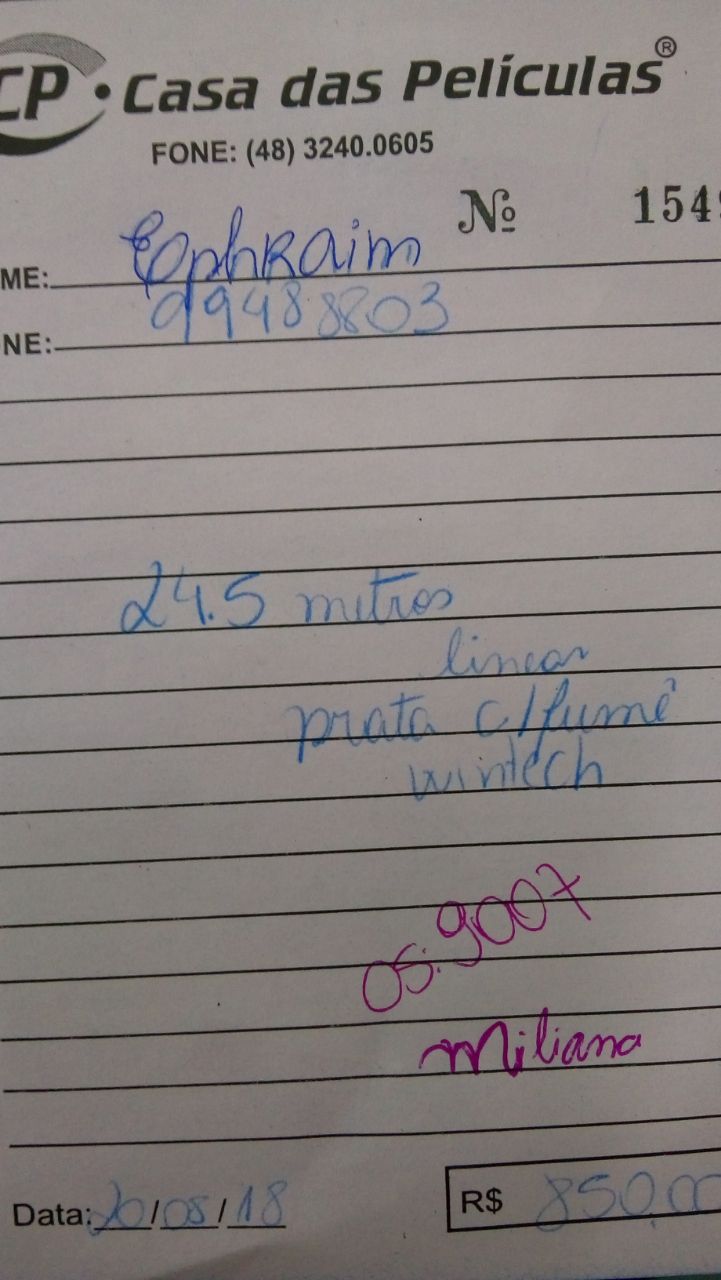 CP • Casa das Películas®
FONE: (48) 3240.0605
Nº 154
ME: Ephraim
NE: 99488803
24.5 metros
linear
prata c/fumê
wintech
OS: 9007
Miliana
Data: 20/08/18 R$ 850,00